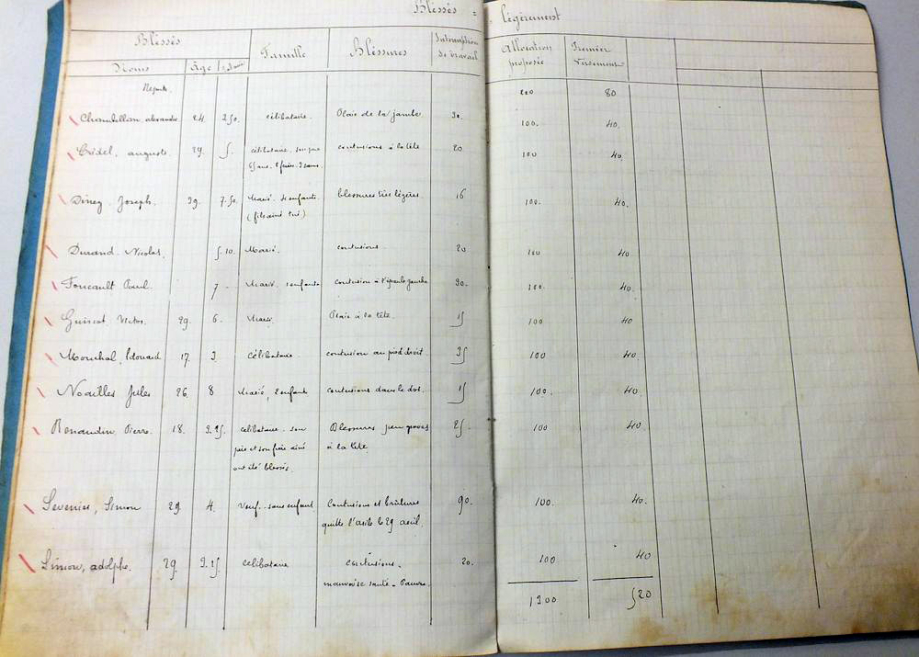 Blessés légèrement
Blessés Famille Blessures Interruption de travail Allocation proposée Premier Versement
Noms Âge
Report. 200 80
alexandre 24. 2.50. célibataire. Plaie de la jambe. 30. 100. 40.
auguste. 29. 5. célibataire. contusions à la tête 20 100 40.
Joseph. 39. 7.50. Marié. enfants blessures très légères. 16 100. 40.
(fils aîné tué.)
Durand. Nicolas. 5.10. Marié. contusions. 20 100 40.
Foucault Paul. 7. Marié. enfants contusion à l'épaule gauche 30. 100. 40.
Victor. 29. 6. Marié. Plaie à la tête. 15 100 40
Édouard 17. 3. Célibataire. contusion au pied droit. 35 100 40.
Noailles Jules 26. 8 Marié, 2 enfants contusions dans le dos. 15 100. 40.
Renaudin. Pierre. 18. 2.25. célibataire. son Blessures peu graves 25. 100 40.
père et son frère aîné à la tête.
ont été blessés.
Simon 29 4. Veuf. sans enfant Contusions et brûlures 90. 100. 40.
quitte l'asile le 29 avril.
Simon, adolphe. 29. célibataire contusions. 20. 100 40
mauvaise santé. Pauvre.
1300 520